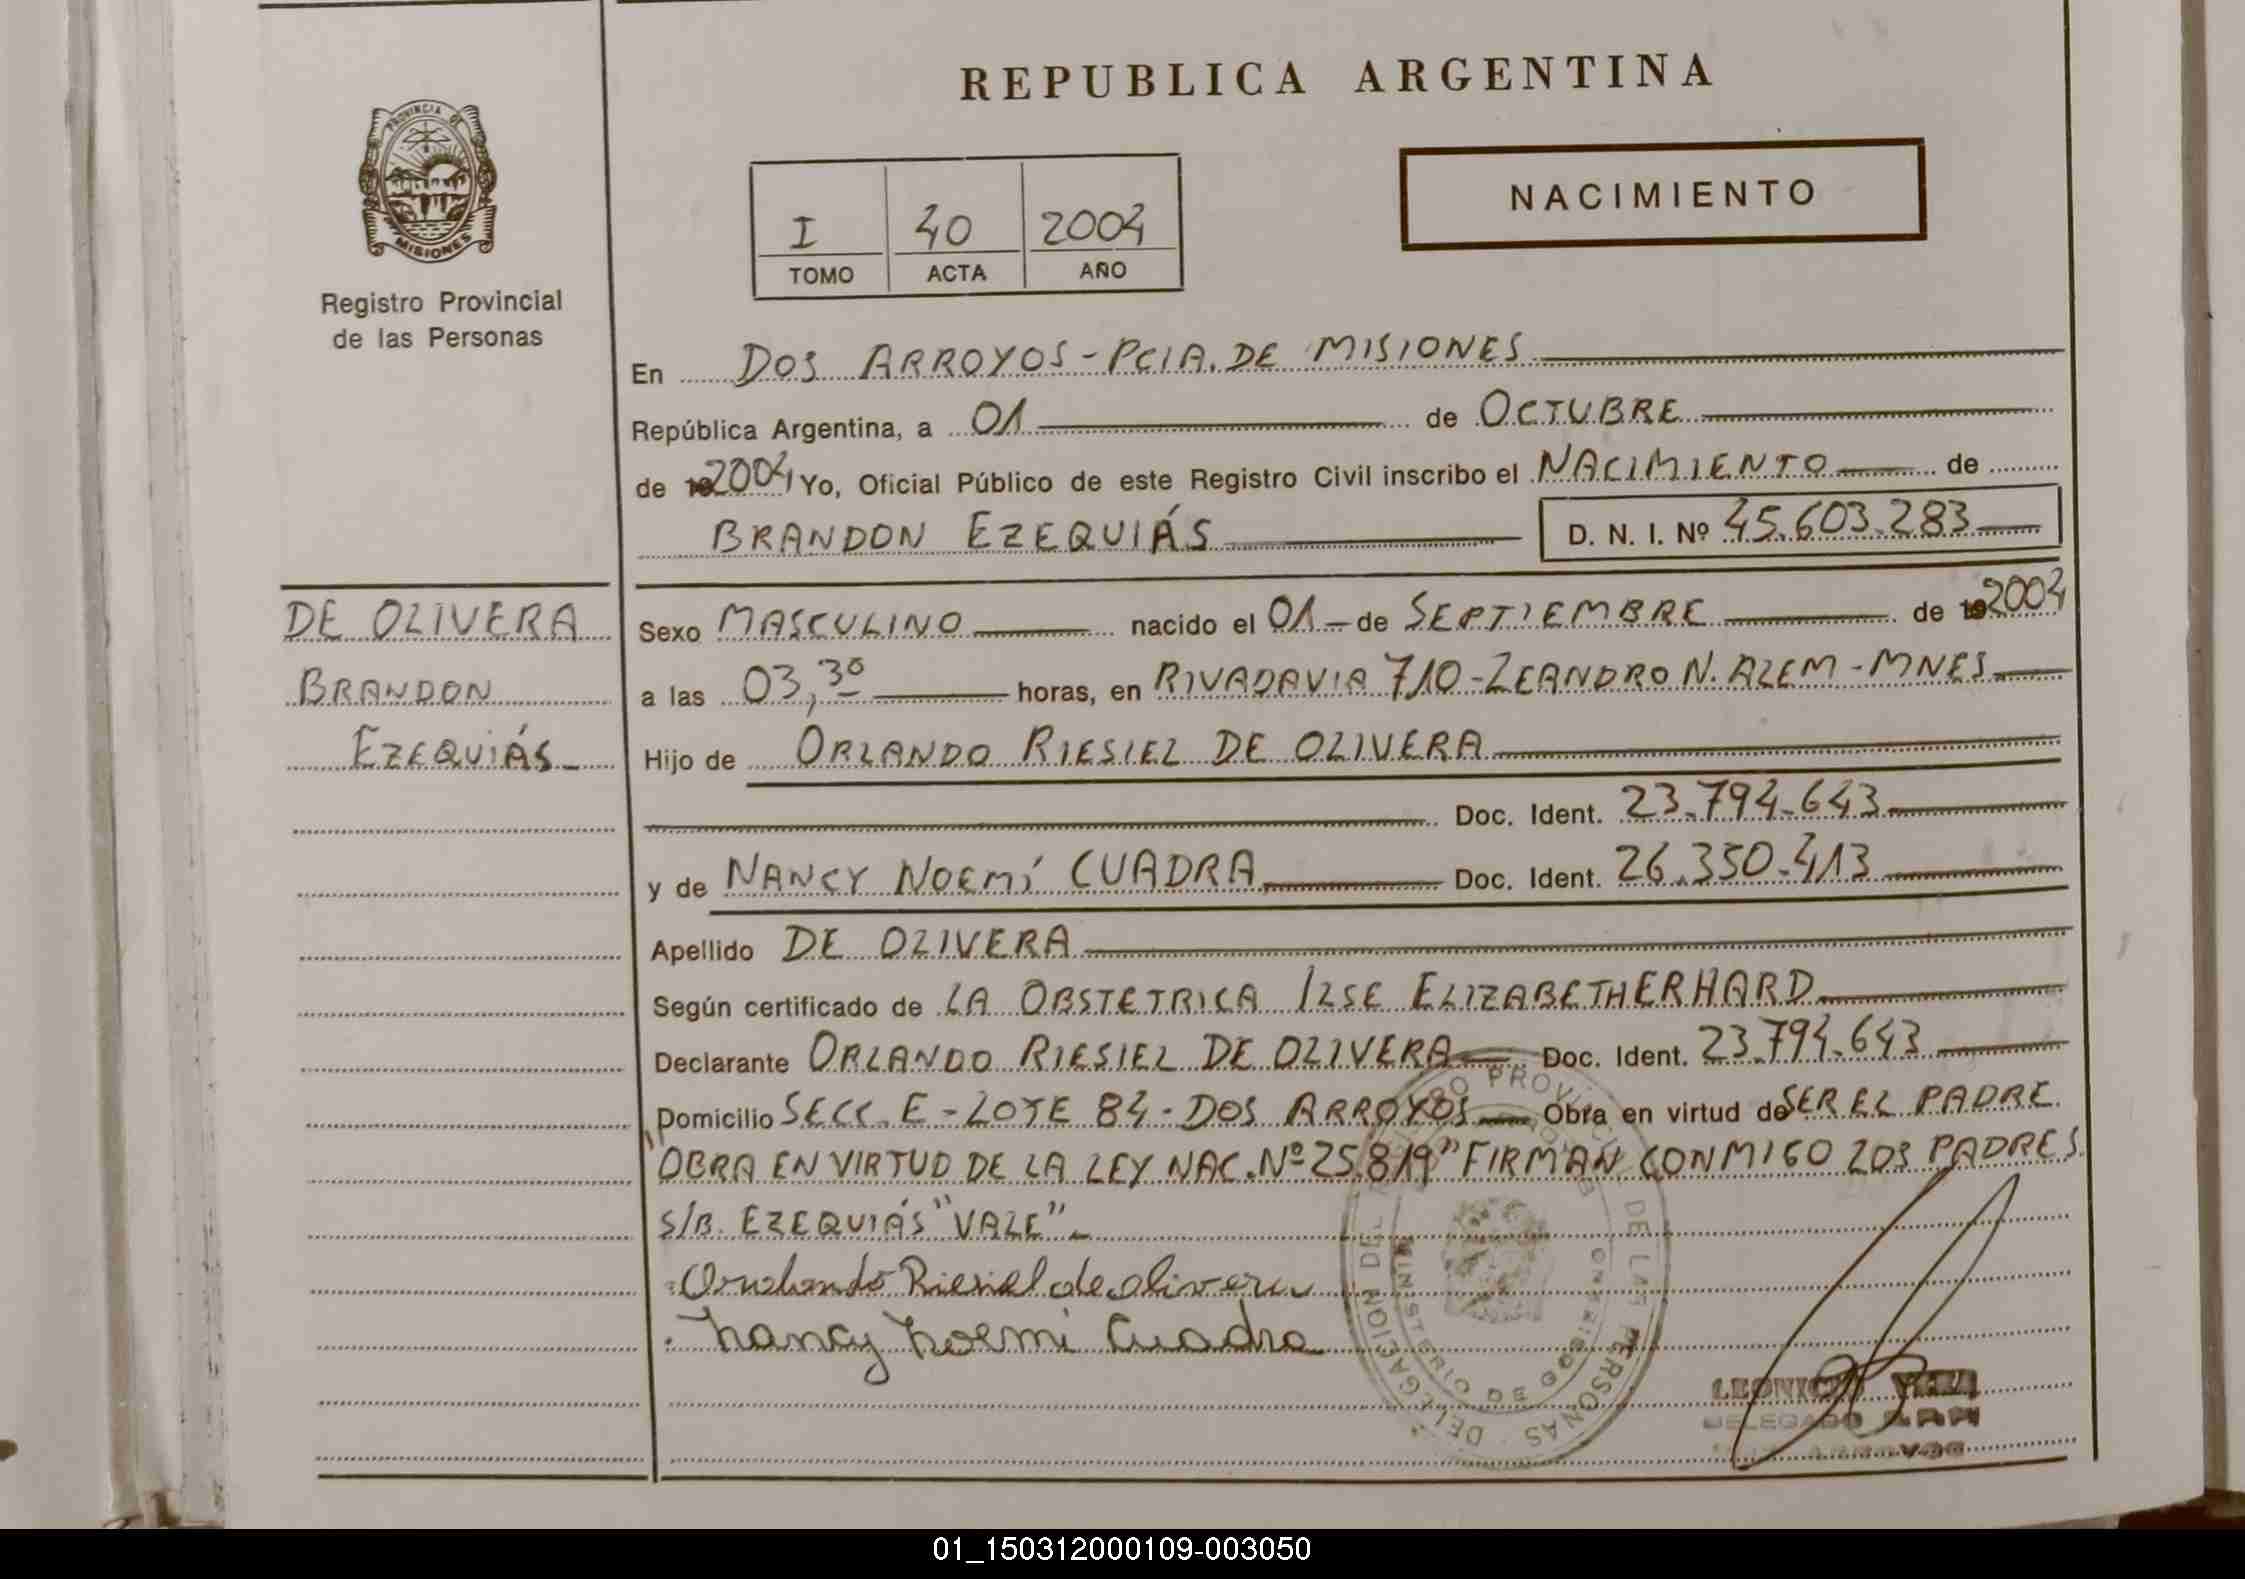 REPUBLICA ARGENTINA
PROVINCIA DE
MISIONES
Registro Provincial
de las Personas
NACIMIENTO
I 40 2004
TOMO ACTA AÑO
En DOS ARROYOS - PCIA. DE MISIONES
República Argentina, a 01 de OCTUBRE
de 19 2004 Yo, Oficial Público de este Registro Civil inscribo el NACIMIENTO de
BRANDON EZEQUIÁS D. N. I. Nº 45.603.283
DE OLIVERA
BRANDON
EZEQUIÁS
Sexo MASCULINO nacido el 01 de SEPTIEMBRE de 19 2004
a las 03,30 horas, en RIVADAVIA 710 - LEANDRO N. ALEM - MNES
Hijo de ORLANDO RIESIEL DE OLIVERA
Doc. Ident. 23.794.643
y de NANCY NOEMÍ CUADRA Doc. Ident. 26.350.413
Apellido DE OLIVERA
Según certificado de LA OBSTETRICA ILSE ELIZABETH ERHARD
Declarante ORLANDO RIESIEL DE OLIVERA Doc. Ident. 23.794.643
Domicilio SECC. E - LOTE 84 - DOS ARROYOS Obra en virtud de SER EL PADRE
"OBRA EN VIRTUD DE LA LEY NAC. Nº 25.819" FIRMAN CONMIGO LOS PADRES.
S/B. EZEQUIÁS "VALE"
Orlando Riesiel de olivera
Nancy Noemi Cuadra
DE LAS PERSONAS
DELEGACION
MINISTERIO DE GOBIERNO
LEONICIO
DELEGADO
ARROYOS
01_150312000109-003050